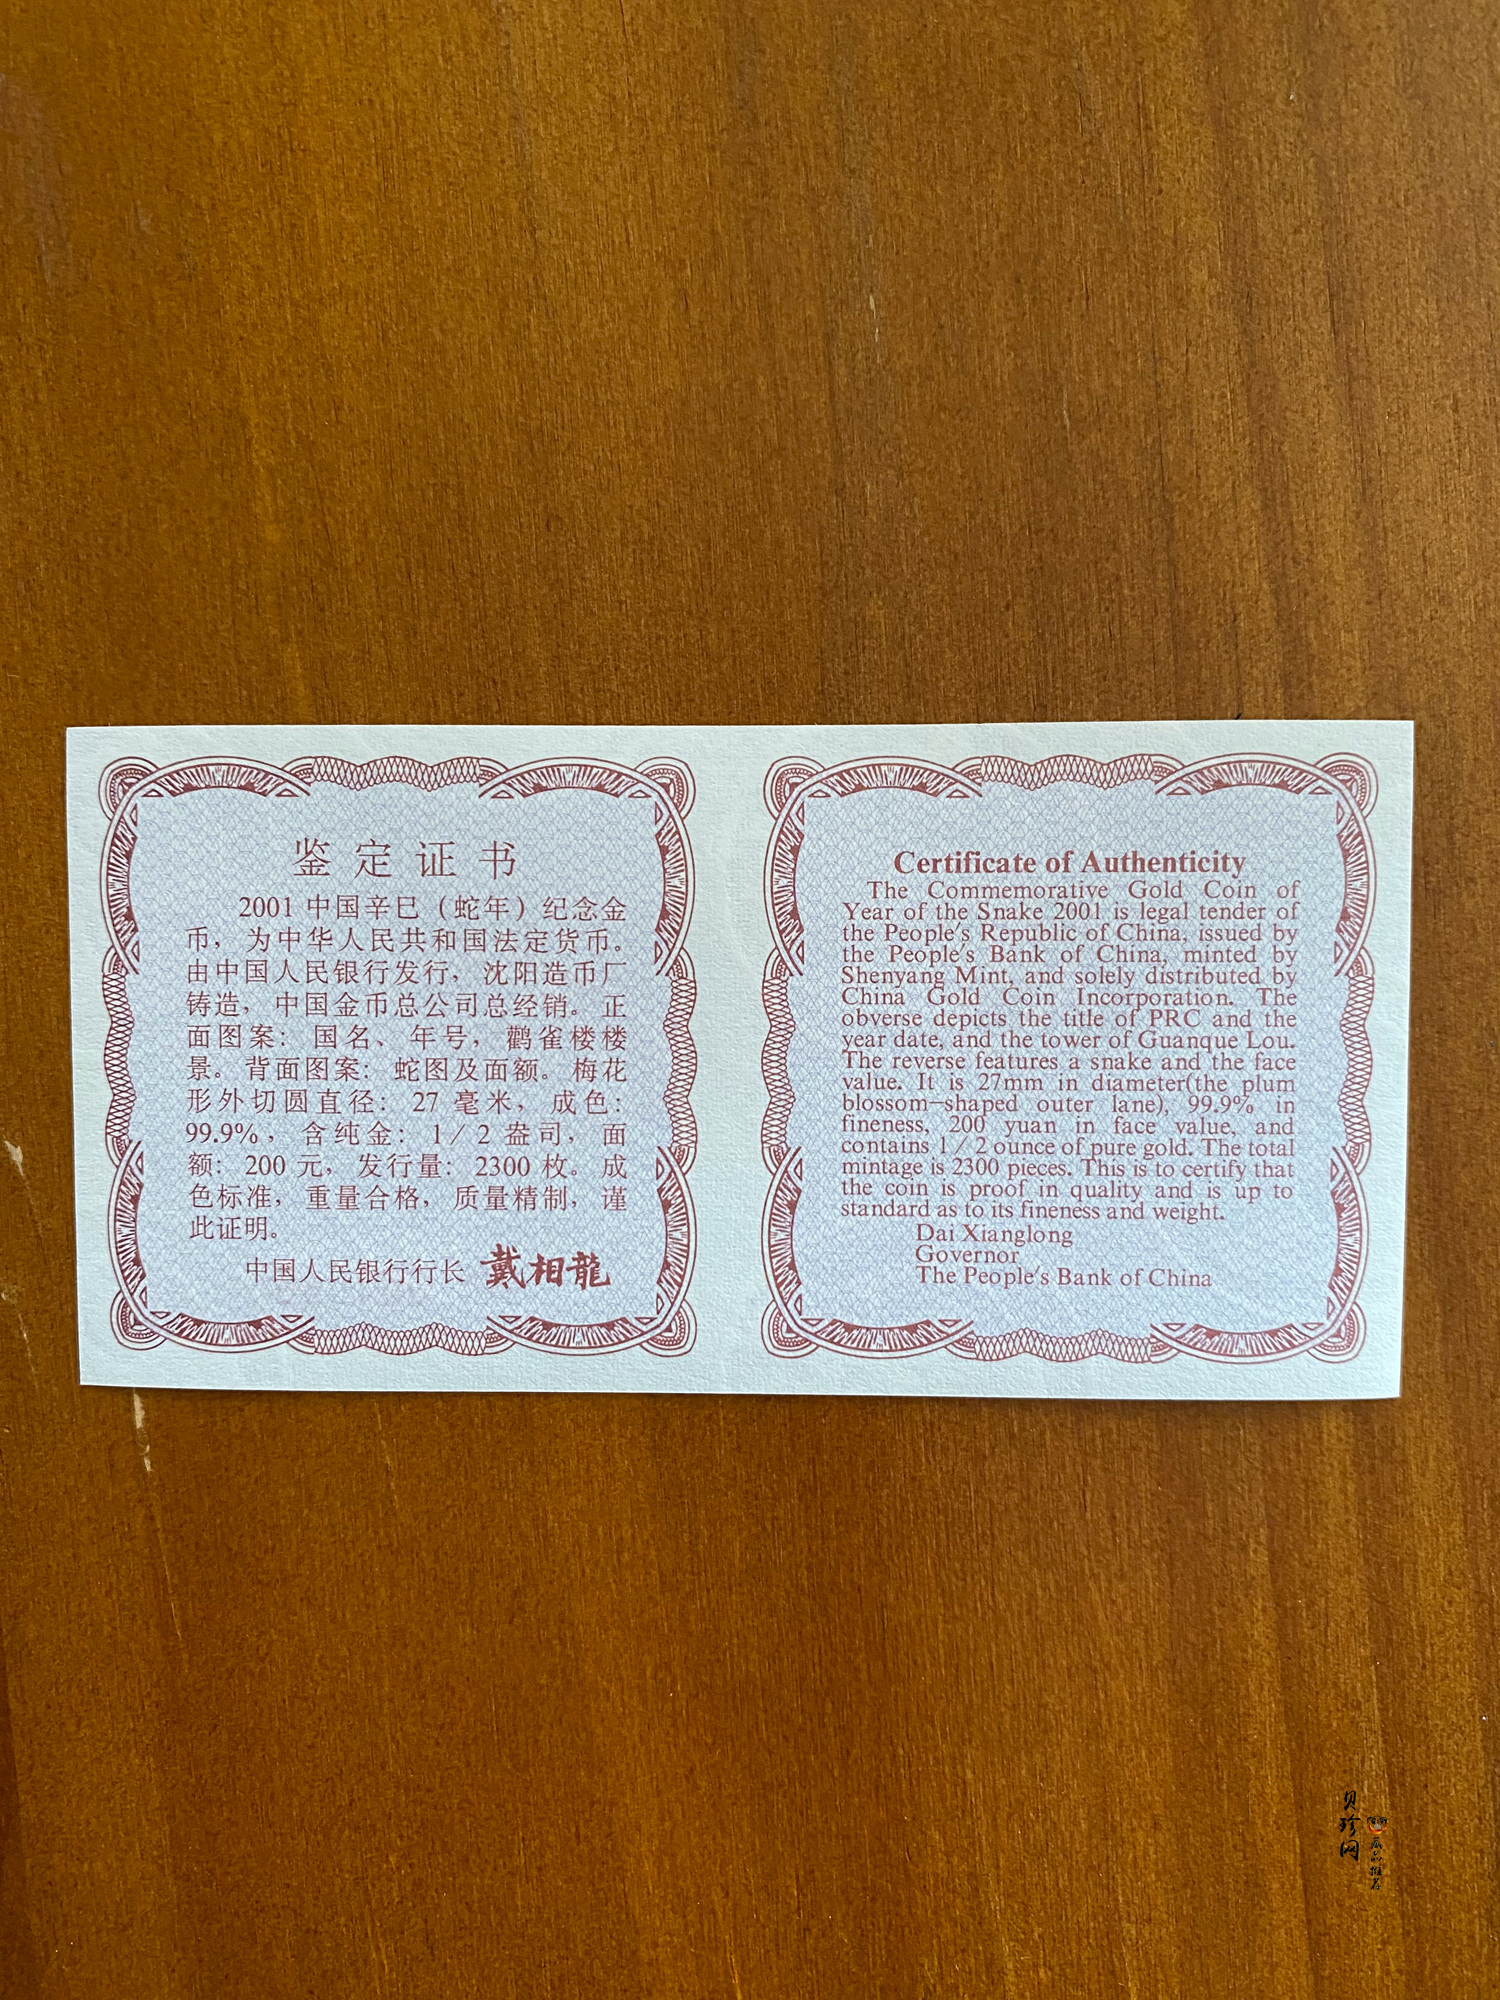 鉴定证书
2001 中国辛巳（蛇年）纪念金
币，为中华人民共和国法定货币。
由中国人民银行发行，沈阳造币厂
铸造，中国金币总公司总经销。正
面图案：国名、年号，鹳雀楼楼
景。背面图案：蛇图及面额。梅花
形外切圆直径：27 毫米，成色：
99.9%，含纯金：1／2 盎司，面
额：200 元，发行量：2300 枚。成
色标准，重量合格，质量精制，谨
此证明。
中国人民银行行长 戴相龍
Certificate of Authenticity
The Commemorative Gold Coin of
Year of the Snake 2001 is legal tender of
the People's Republic of China, issued by
the People's Bank of China, minted by
Shenyang Mint, and solely distributed by
China Gold Coin Incorporation. The
obverse depicts the title of PRC and the
year date, and the tower of Guanque Lou.
The reverse features a snake and the face
value. It is 27mm in diameter(the plum
blossom-shaped outer lane), 99.9% in
fineness, 200 yuan in face value, and
contains 1／2 ounce of pure gold. The total
mintage is 2300 pieces. This is to certify that
the coin is proof in quality and is up to
standard as to its fineness and weight.
Dai Xianglong
Governor
The People's Bank of China
贝珍网
藏品推荐